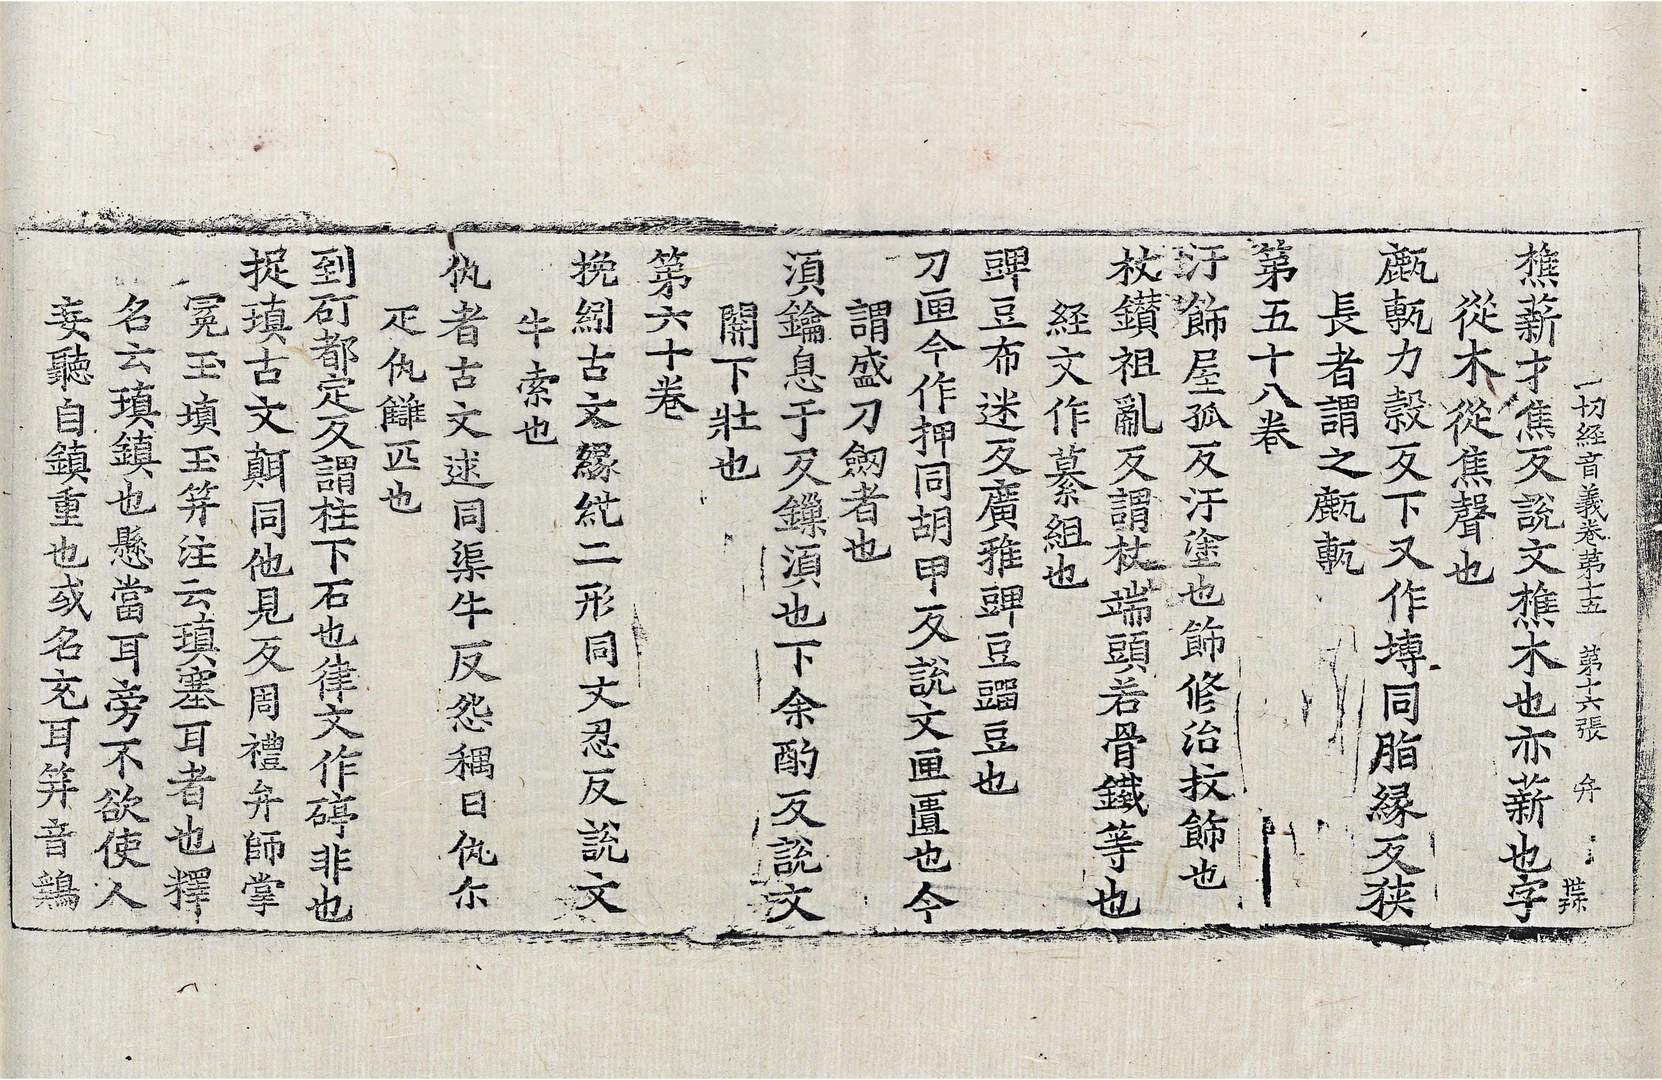 一切経音義卷苐十五 苐十六張 弁 世採
樵薪才焦反說文樵木也亦薪也字
從木從焦聲也
甗甎力縠反下又作塼同脂縁反狭
長者謂之甗甎
苐五十八卷
汙飾屋孤反汙塗也飾修治抆飾也
杖鑚祖亂反謂杖端頭若骨鐵等也
経文作纂組也
豍豆布迷反廣雅豍豆䝁豆也
刀匣今作押同胡甲反說文匣匱也今
謂盛刀劔者也
湏鑰息于反鏁湏也下余酌反說文
關下壯也
苐六十卷
挽紖古文䌥紖二形同丈忍反說文
牛索也
仇者古文逑同渠牛反怨耦曰仇尒
疋仇讎匹也
矴石都定反謂柱下石也律文作碠非也
捉瑱古文䪴同他見反周禮弁師掌
冕玉塡玉笄注云瑱塞耳者也釋
名云瑱鎮也懸當耳旁不欲使人
妄聽自鎮重也或名充耳笄音鷄